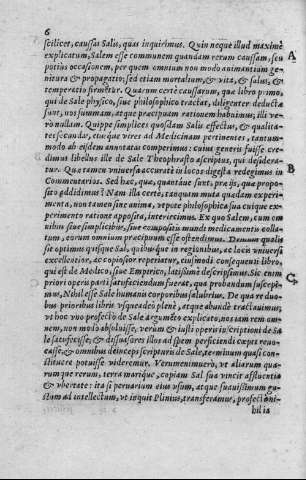 6
scilicet, caussas Salis, quas inquirimus. Quin neque illud maximè
explicatum, Salem esse communem quandam rerum caussam, seu
potius occasionem, per quem omnium non modo animantium ge-
nitura & propagatio; sed etiam mortalium, & vita, & salus, &
temperatio firmetur. Quarum certè caussarum, quæ libro primo,
qui de Sale physico, siue philosophico tractat, diligenter deductæ
sunt, nos summam, atque præcipuam rationem habuimus, illi ve-
rò nullam. Quippe simplices quosdam Salis effectus, & qualita-
tes secundas, eiusque vires ad Medicinam pertinentes, tantum-
modo ab eisdem annotatas comperimus: cuius generis fuisse cre-
dimus libellum ille de Sale Theophrasto ascriptus, qui desidera-
tur. Quæ tamen vniuersa accuratè in locos digesta redegimus in
Commentarios. Sed hac, quæ, quantáue sint, præ ijs, quæ propo-
sito addidimus? Nam illa certè tanquam muta quædam experi-
menta, non tamen sine anima, vtpote philosophica sua cuique ex-
perimento ratione apposita, interiecimus. Ex quo Salem, cum om-
nibus siue simplicibus, siue compositis mundi medicamentis colla-
tum, eorum omnium præcipuum esse ostendimus. Demum qualis
sit optimus quisque Sal, quibusque in regionibus, ac locis vniuersi
excellentior, ac copiosior reperiatur, eiusmodi consequenti libro,
qui est de Medico, siue Empirico, latissimè descripsimus. Sic enim
priori operis parti satisfaciendum fuerat, qua probandum suscepi-
mus, Nihil esse Sale humanis corporibus salubrius. De qua re duo-
bus prioribus libris vsquequaque plenè, atque abundè tractauimus;
vt hoc vno profectò de Sale argumeto explicato, nos iam rem om-
nem, non modo absoluisse, verùm & iusti operis inscriptioni de Sa-
le satisfecisse, & dissuasores illos ad spem perficiendi cœpti reuo-
casse, & omnibus deinceps scripturis de Sale, terminum quasi con-
stituere potuisse videremur. Verumenimuerò, vt aliarum quar-
umque rerum, terra marique, copiam Sal sua vincit affluentia
& vbertate: ita si peruarium eius vsum, atque suauissimum gu-
stum ad intellectum, vt inquit Plinius, transferamus, profectò ni-
hil ia
A
B
C